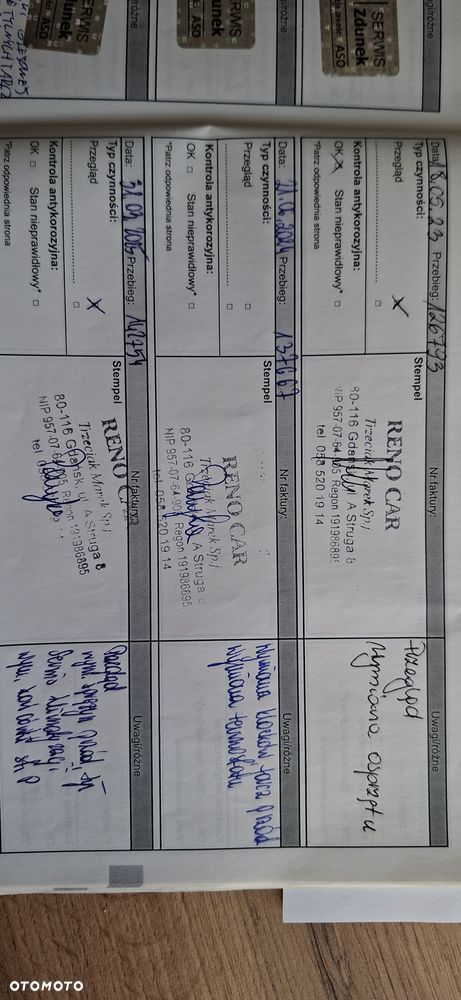 giróżne
SERWIS
Zdunek
ASO
agi/różne
SERWIS
Zdunek
ASO
agi/różne
SERWIS
Zdunek
ASO
Data: 18.05.23 Przebieg: 126793
Nr faktury:
Uwagi/różne
Typ czynności:
Przegląd
X
Kontrola antykorozyjna:
OK X Stan nieprawidłowy*
*Patrz odpowiednia strona
Stempel
RENO CAR
Trzeciak Marek Sp.j
80-116 Gdańsk, ul A Struga 8
NIP 957-07-64-905 Regon 191986895
tel 058 520 19 14
Przegląd
Wymiana osprzętu
Data: 21.06.2024 Przebieg: 137667
Nr faktury:
Uwagi/różne
Typ czynności:
Przegląd
Kontrola antykorozyjna:
OK Stan nieprawidłowy*
*Patrz odpowiednia strona
Stempel
RENO CAR
Trzeciak Marek Sp.j
80-116 Gdańsk, ul A Struga 8
NIP 957-07-64-905 Regon 191986895
tel 058 520 19 14
Wymiana klocków tarcz przód
wymiana termostatu
Data: 31.03.2025 Przebieg: 142754
Nr faktury:
Uwagi/różne
Typ czynności:
Przegląd
X
Kontrola antykorozyjna:
OK Stan nieprawidłowy*
*Patrz odpowiednia strona
Stempel
RENO CAR
Trzeciak Marek Sp.j
80-116 Gdańsk, ul A Struga 8
NIP 957-07-64-905 Regon 191986895
tel
Przegląd
przód tył
OTOMOTO